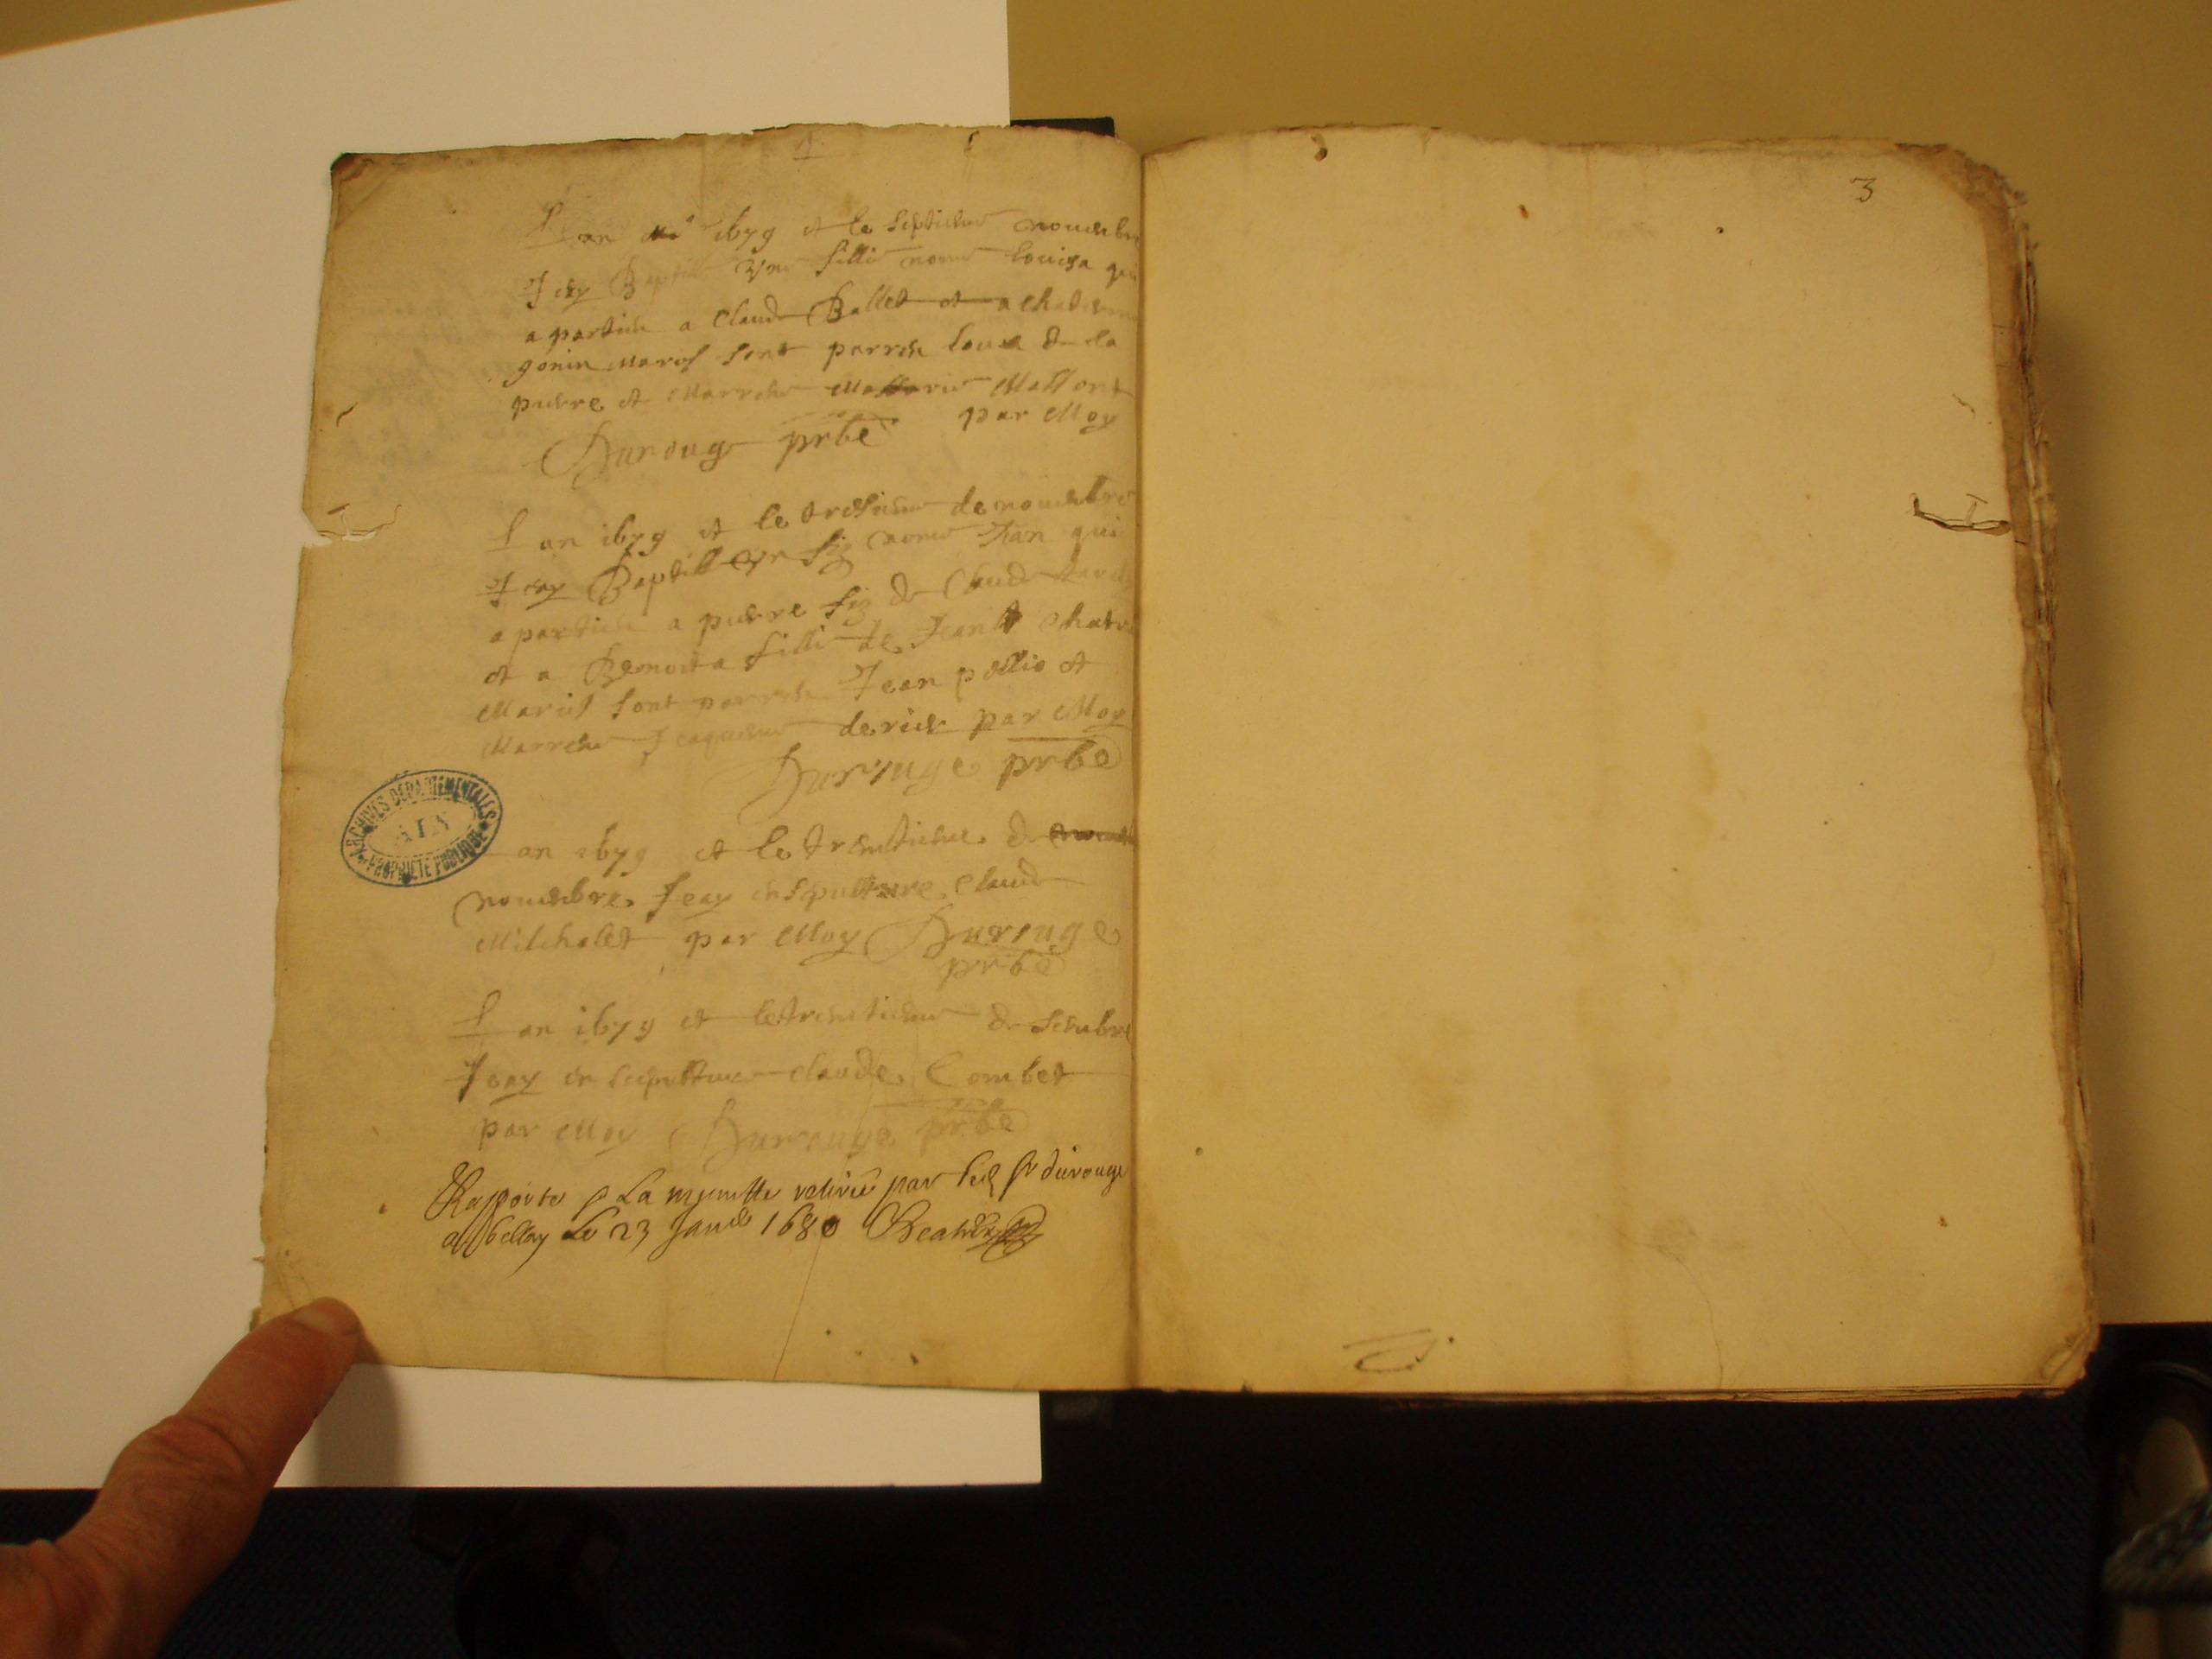 L an 1679 et le septieme novembre
Jeay Baptise Une fillie nome Louisa qui
a partien a Claude Ballet et a
gonin Maries sont parren Louis de la
pierre et Marrene
par Moy
Durouge prbe
L an 1679 et le tresieme de novembre
Jeay Baptise Un fiz nome Jan qui
a partien a pierre fiz de Claude
et a Benoita fillie de Jean
Maries sont parren Jean pollio et
Marrene Jaqueme par Moy
Durouge prbe
L an 1679 et le trentieme de
novembre Jeay ensepulture Claude
Milchalet par Moy Durouge
prbe
L an 1679 et le trentieme de
Jeay ensepulture claude Combet
par Moy Durouge prbe
Raporte p La minutte retiree par led Sr durouge
a belley Le 23 Janv 1680
3
ARCHIVES DÉPARTEMENTALES
AIN
PROPRIÉTÉ PUBLIQUE